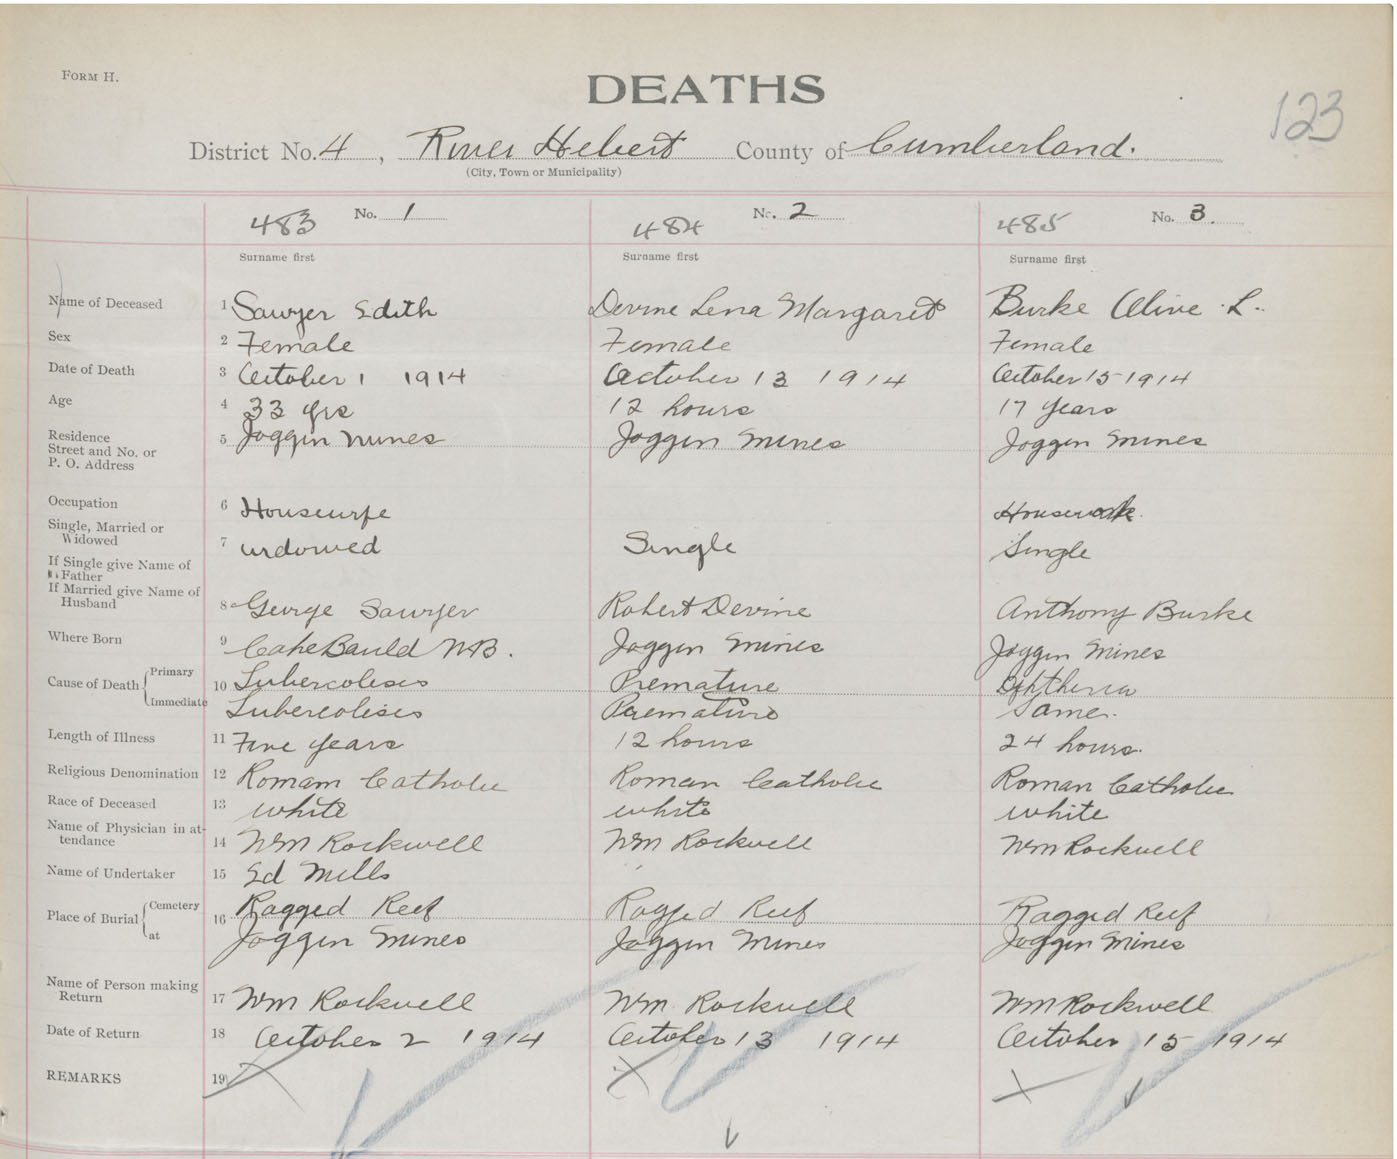 FORM H.
DEATHS
123
District No. 4, River Hebert County of Cumberland.
(City, Town or Municipality)
483 No. 1 484 No. 2 485 No. 3.
Surname first Surname first Surname first
Name of Deceased 1 Sawyer Edith Devine Lena Margaret Burke Olive L.
Sex 2 Female Female Female
Date of Death 3 October 1 1914 October 13 1914 October 15 1914
Age 4 33 yrs 12 hours 17 years
Residence
Street and No. or
P. O. Address
5 Joggin mines Joggin mines Joggin mines
Occupation 6 Housewife Housework
Single, Married or
Widowed
7 widowed Single Single
If Single give Name of
Father
If Married give Name of
Husband
8 George Sawyer Robert Devine Anthony Burke
Where Born 9 Cape Bauld N.B. Joggin mines Joggin mines
Cause of Death Primary 10 Tubercolisis Premature Diphtheria
Immediate Tubercolisis Premature Same.
Length of Illness 11 Five years 12 hours 24 hours.
Religious Denomination 12 Roman Catholic Roman Catholic Roman Catholic
Race of Deceased 13 white white white
Name of Physician in at-
tendance
14 Wm Rockwell Wm Rockwell Wm Rockwell
Name of Undertaker 15 Ed Mills
Place of Burial Cemetery 16 Ragged Reef Ragged Reef Ragged Reef
at Joggin mines Joggin mines Joggin mines
Name of Person making
Return
17 Wm Rockwell Wm Rockwell Wm Rockwell
Date of Return 18 October 2 1914 October 13 1914 October 15 1914
REMARKS 19